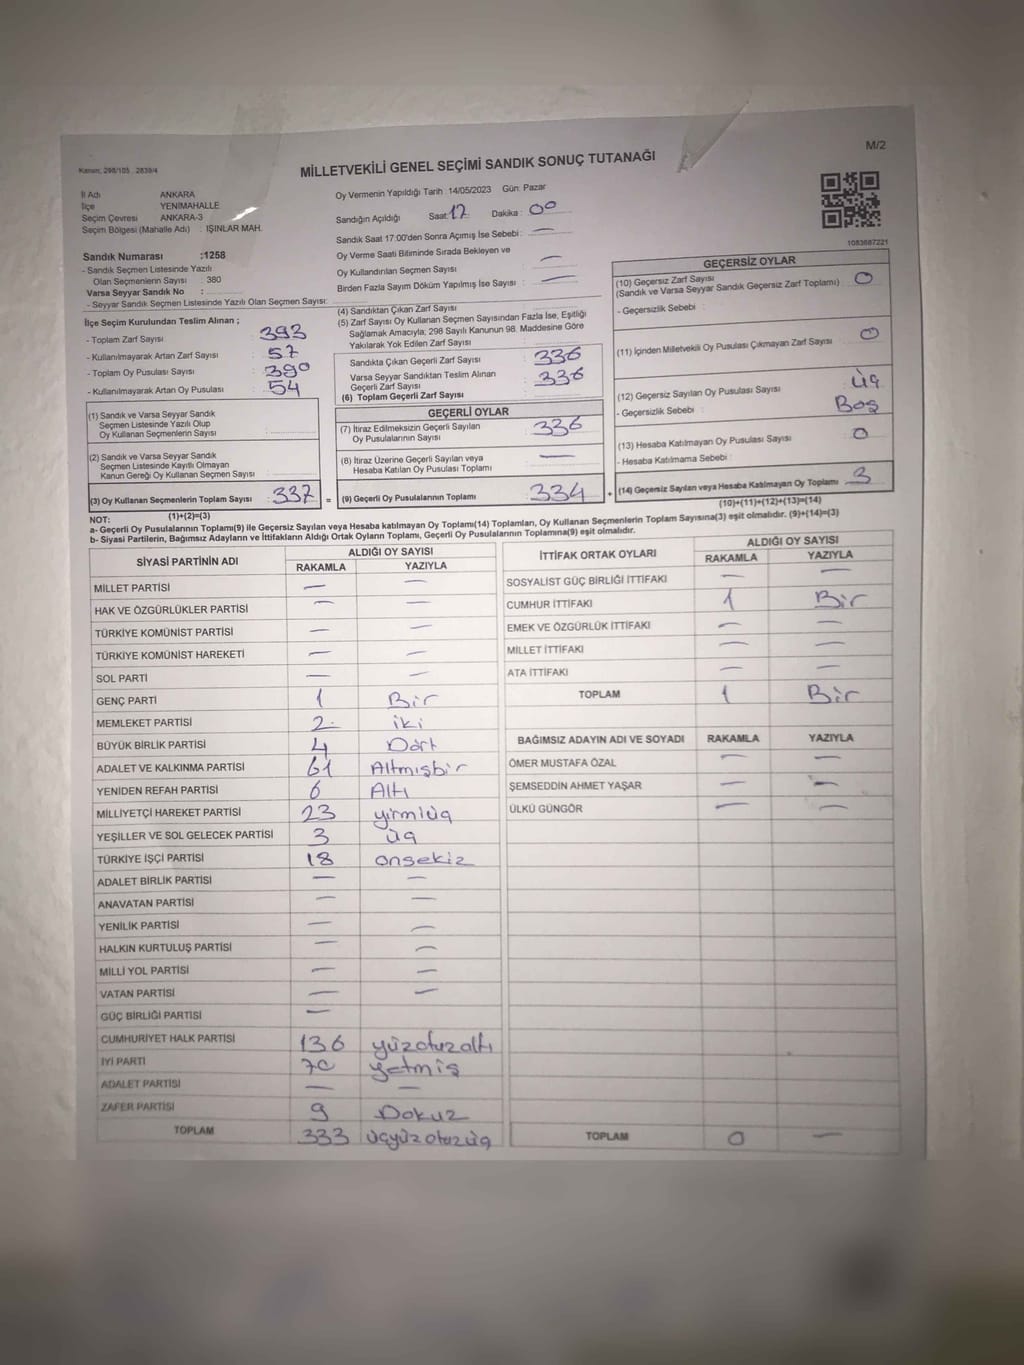 M/2
Kanun: 298/105 2839/4
MİLLETVEKİLİ GENEL SEÇİMİ SANDIK SONUÇ TUTANAĞI
İl Adı ANKARA
İlçe YENİMAHALLE
Seçim Çevresi ANKARA-3
Seçim Bölgesi (Mahalle Adı) : IŞINLAR MAH.
Sandık Numarası :1258
- Sandık Seçmen Listesinde Yazılı
Olan Seçmenlerin Sayısı : 380
Varsa Seyyar Sandık No :
- Seyyar Sandık Seçmen Listesinde Yazılı Olan Seçmen Sayısı:
Oy Vermenin Yapıldığı Tarih 14/05/2023 Gün: Pazar
Sandığın Açıldığı Saat: 17 Dakika : 00
Sandık Saat 17:00'den Sonra Açımış İse Sebebi : —
Oy Verme Saati Bitiminde Sırada Bekleyen ve
Oy Kullandırılan Seçmen Sayısı —
Birden Fazla Sayım Döküm Yapılmış İse Sayısı : —
1083687221
İlçe Seçim Kurulundan Teslim Alınan ;
- Toplam Zarf Sayısı : 393
- Kullanılmayarak Artan Zarf Sayısı : 57
- Toplam Oy Pusulası Sayısı : 390
- Kullanılmayarak Artan Oy Pusulası : 54
(1) Sandık ve Varsa Seyyar Sandık
Seçmen Listesinde Yazılı Olup
Oy Kullanan Seçmenlerin Sayısı :
(2) Sandık ve Varsa Seyyar Sandık
Seçmen Listesinde Kayıtlı Olmayan
Kanun Gereği Oy Kullanan Seçmen Sayısı :
(3) Oy Kullanan Seçmenlerin Toplam Sayısı : 337 =
(1)+(2)=(3)
(4) Sandıktan Çıkan Zarf Sayısı :
(5) Zarf Sayısı Oy Kullanan Seçmen Sayısından Fazla İse, Eşitliği
Sağlamak Amacıyla; 298 Sayılı Kanunun 98. Maddesine Göre
Yakılarak Yok Edilen Zarf Sayısı :
Sandıkta Çıkan Geçerli Zarf Sayısı : 336
Varsa Seyyar Sandıktan Teslim Alınan
Geçerli Zarf Sayısı : 336
(6) Toplam Geçerli Zarf Sayısı :
GEÇERLİ OYLAR
(7) İtiraz Edilmeksizin Geçerli Sayılan
Oy Pusulalarının Sayısı : 336
(8) İtiraz Üzerine Geçerli Sayılan veya
Hesaba Katılan Oy Pusulası Toplamı : —
(9) Geçerli Oy Pusulalarının Toplamı : 334 +
GEÇERSİZ OYLAR
(10) Geçersiz Zarf Sayısı : 0
(Sandık ve Varsa Seyyar Sandık Geçersiz Zarf Toplamı)
- Geçersizlik Sebebi :
(11) İçinden Milletvekili Oy Pusulası Çıkmayan Zarf Sayısı : 0
(12) Geçersiz Sayılan Oy Pusulası Sayısı : Üç
- Geçersizlik Sebebi : Boş
(13) Hesaba Katılmayan Oy Pusulası Sayısı : 0
- Hesaba Katılmama Sebebi :
(14) Geçersiz Sayılan veya Hesaba Katılmayan Oy Toplamı : 3
(10)+(11)+(12)+(13)=(14)
NOT:
a- Geçerli Oy Pusulalarının Toplamı(9) ile Geçersiz Sayılan veya Hesaba katılmayan Oy Toplamı(14) Toplamları, Oy Kullanan Seçmenlerin Toplam Sayısına(3) eşit olmalıdır. (9)+(14)=(3)
b- Siyasi Partilerin, Bağımsız Adayların ve İttifakların Aldığı Ortak Oyların Toplamı, Geçerli Oy Pusulalarının Toplamına(9) eşit olmalıdır.
SİYASİ PARTİNİN ADI ALDIĞI OY SAYISI
RAKAMLA YAZIYLA
MİLLET PARTİSİ — —
HAK VE ÖZGÜRLÜKLER PARTİSİ — —
TÜRKİYE KOMÜNİST PARTİSİ — —
TÜRKİYE KOMÜNİST HAREKETİ — —
SOL PARTİ — —
GENÇ PARTİ 1 Bir
MEMLEKET PARTİSİ 2 iki
BÜYÜK BİRLİK PARTİSİ 4 Dört
ADALET VE KALKINMA PARTİSİ 61 Altmışbir
YENİDEN REFAH PARTİSİ 6 Altı
MİLLİYETÇİ HAREKET PARTİSİ 23 yirmiüç
YEŞİLLER VE SOL GELECEK PARTİSİ 3 üç
TÜRKİYE İŞÇİ PARTİSİ 18 onsekiz
ADALET BİRLİK PARTİSİ — —
ANAVATAN PARTİSİ — —
YENİLİK PARTİSİ — —
HALKIN KURTULUŞ PARTİSİ — —
MİLLİ YOL PARTİSİ — —
VATAN PARTİSİ — —
GÜÇ BİRLİĞİ PARTİSİ —
CUMHURİYET HALK PARTİSİ 136 yüzotuzaltı
İYİ PARTİ 70 yetmiş
ADALET PARTİSİ — —
ZAFER PARTİSİ 9 Dokuz
TOPLAM 333 üçyüzotuzüç
İTTİFAK ORTAK OYLARI ALDIĞI OY SAYISI
RAKAMLA YAZIYLA
SOSYALİST GÜÇ BİRLİĞİ İTTİFAKI — —
CUMHUR İTTİFAKI 1 Bir
EMEK VE ÖZGÜRLÜK İTTİFAKI — —
MİLLET İTTİFAKI — —
ATA İTTİFAKI — —
TOPLAM 1 Bir
BAĞIMSIZ ADAYIN ADI VE SOYADI RAKAMLA YAZIYLA
ÖMER MUSTAFA ÖZAL — —
ŞEMSEDDİN AHMET YAŞAR — —
ÜLKÜ GÜNGÖR — —
TOPLAM 0 —